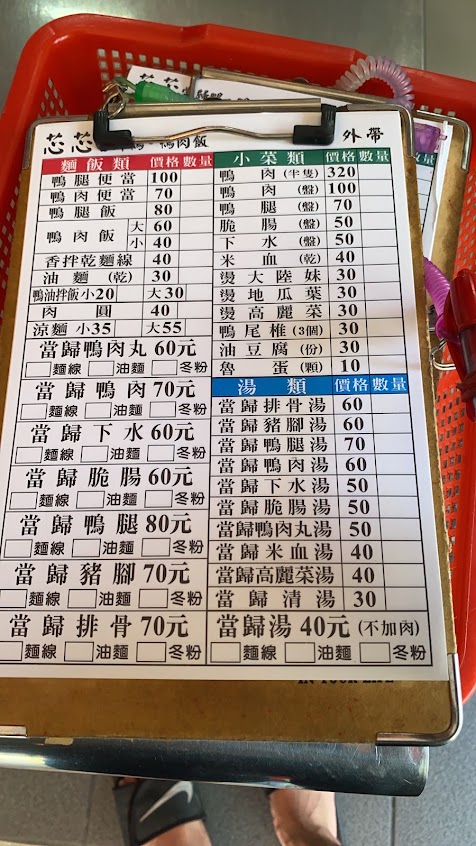 芯芯 鴨肉飯 外帶
麵飯類 價格 數量
鴨腿便當 100
鴨肉便當 70
鴨腿飯 80
鴨肉飯 大 60
小 40
香拌乾麵線 40
油麵(乾) 30
鴨油拌飯 小20 大30
肉圓 40
涼麵 小35 大55
當歸鴨肉丸 60元
麵線 油麵 冬粉
當歸鴨肉 70元
麵線 油麵 冬粉
當歸下水 60元
麵線 油麵 冬粉
當歸脆腸 60元
麵線 油麵 冬粉
當歸鴨腿 80元
麵線 油麵 冬粉
當歸豬腳 70元
麵線 油麵 冬粉
當歸排骨 70元
麵線 油麵 冬粉
小菜類 價格 數量
鴨肉(半隻) 320
鴨肉(盤) 100
鴨腿(盤) 70
脆腸(盤) 50
下水(盤) 50
米血(乾) 40
燙大陸妹 30
燙地瓜葉 30
燙高麗菜 30
鴨尾椎(3個) 30
油豆腐(份) 30
魯蛋(顆) 10
湯類 價格 數量
當歸排骨湯 60
當歸豬腳湯 60
當歸鴨腿湯 70
當歸鴨肉湯 60
當歸下水湯 50
當歸脆腸湯 50
當歸鴨肉丸湯 50
當歸米血湯 40
當歸高麗菜湯 40
當歸清湯 30
當歸湯 40元(不加肉)
麵線 油麵 冬粉
IN YOUR LIFE